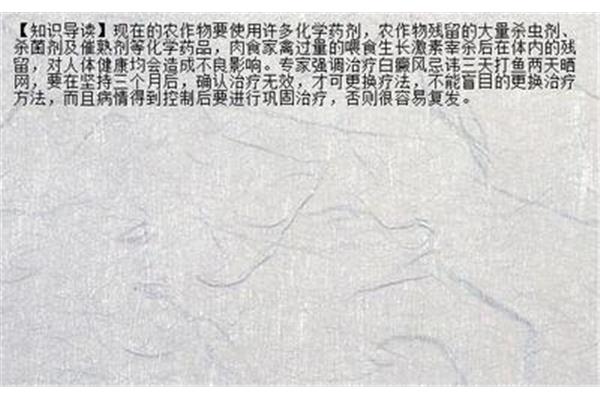 【知识导读】现在的农作物要使用许多化学药剂，农作物残留的大量杀虫剂、
杀菌剂及催熟剂等化学药品，肉食家禽过量的喂食生长激素宰杀后在体内的残
留，对人体健康均会造成不良影响。专家强调治疗白癜风忌讳三天打鱼两天晒
网，要在坚持三个月后，确认治疗无效，才可更换疗法，不能盲目的更换治疗
方法，而且病情得到控制后要进行巩固治疗，否则很容易复发。